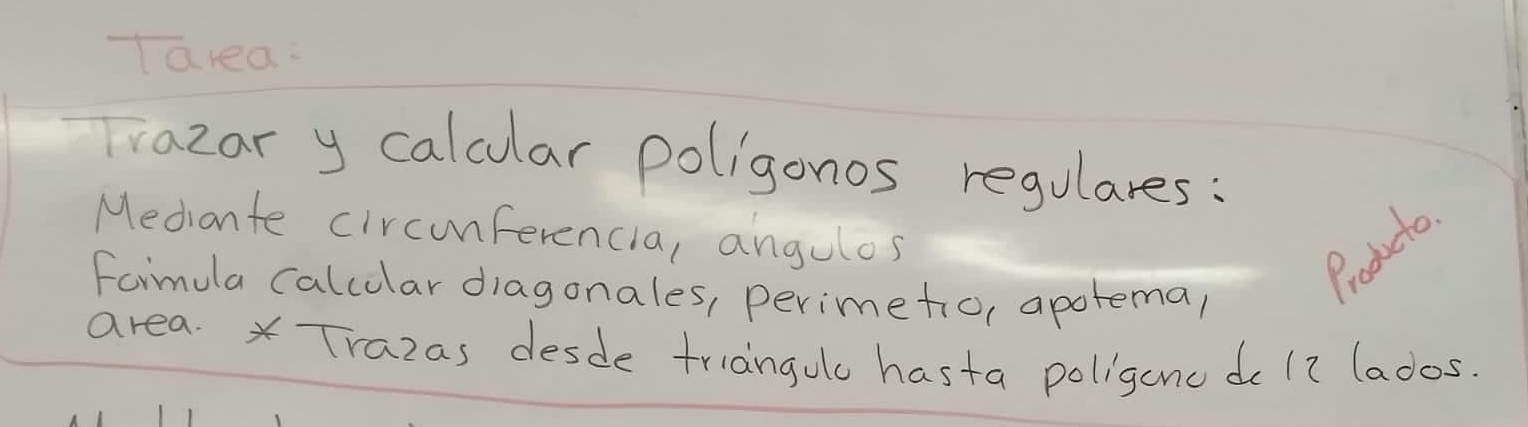 Tarea:
Trazar y calcular polígonos regulares:
Mediante circunferencia, ángulos
Formula calcular diagonales, perimetro, apotema,
area. * Trazas desde triángulo hasta polígono de 12 lados.
Producto.